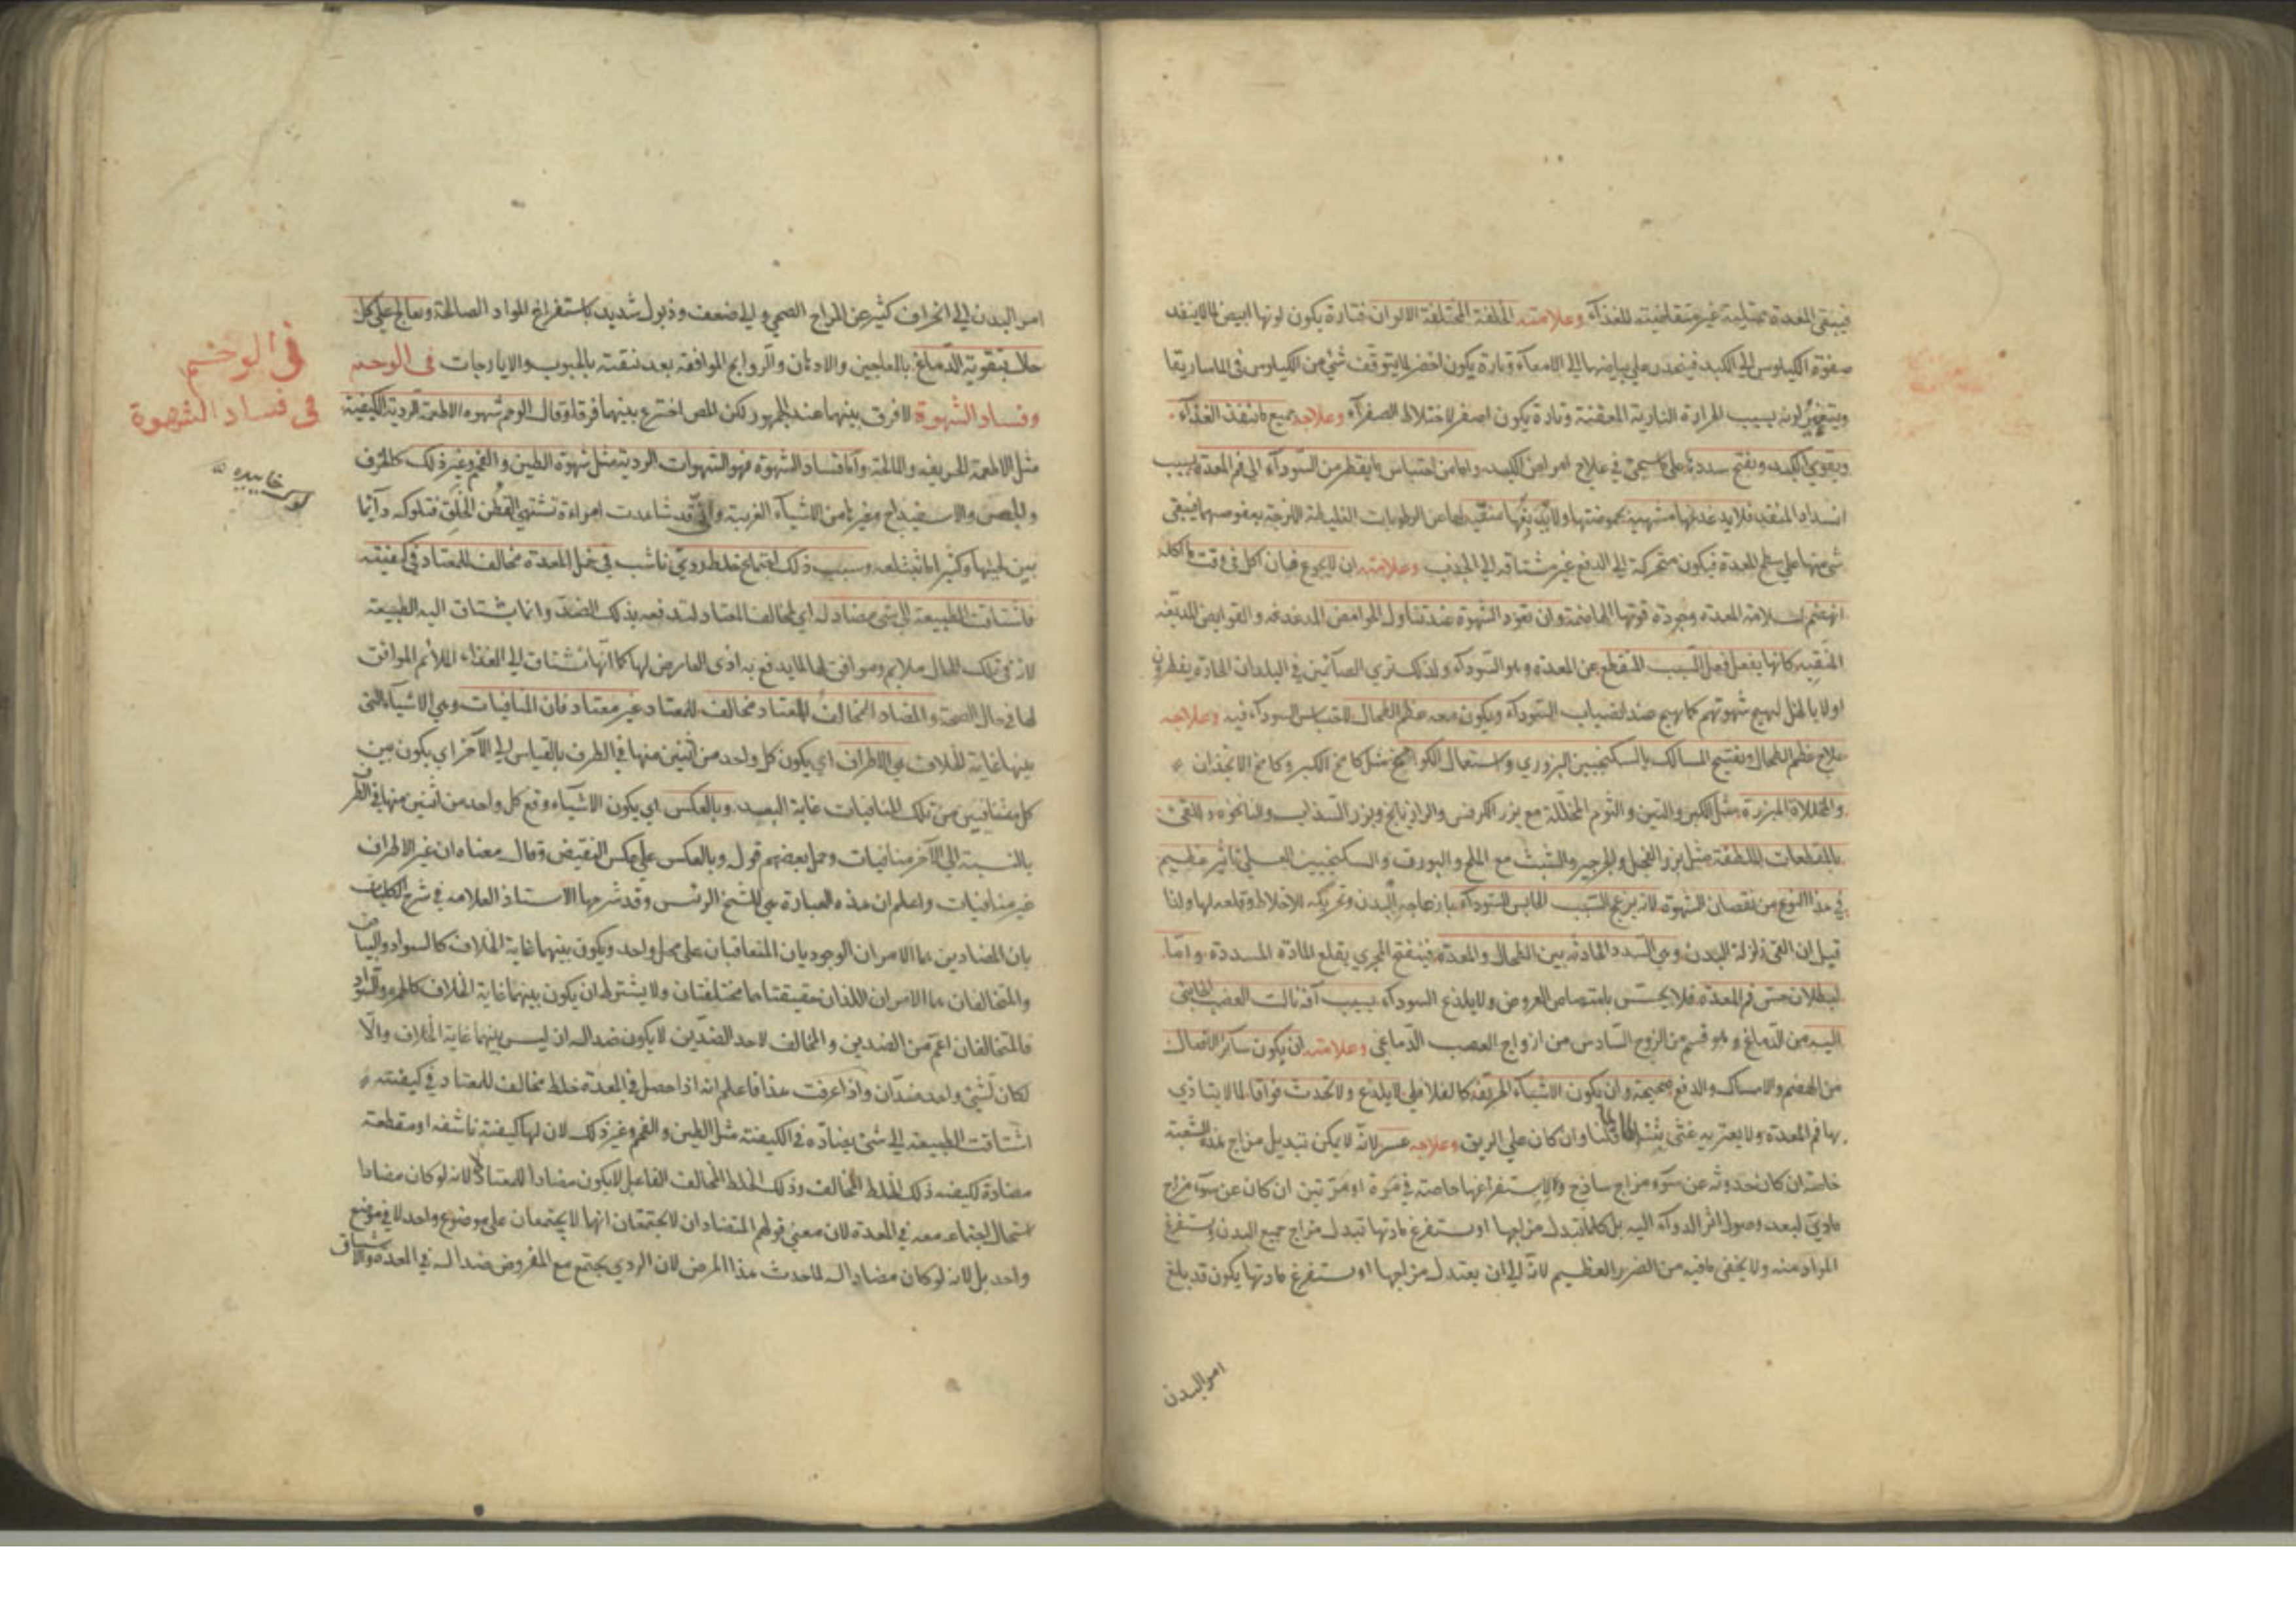 فيبقى المعدة ممتلية غير متقاضيته للغذآء وعلامته الملغة المختلفة الالوان فتارة يكون لونها ابيض لما لا ينفد
صفوة الكيلوس الى الكبد فينحدر على بياضها الى الامعآء وتارة يكون اخضر لما يتوقف شئ من الكيلوس فى الماساريقا
ويتغير لونه بسبب الحرارة النارية المعفنة وتارة يكون اصفر لاختلاط الصفرآء وعلاجه جميع ما ينفذ الغذآء
ويقوى الكبد ويفتح سددها على ما سيجئ فى علاج امراض الكبد واما من احتباس ما يقطر من السودآء الى فم المعدة بسبب
انسداد المنفذ فلا يدغدغها منبهة بحموضتها ولا منقية لها من الرطوبات البلغمية اللزجة بعفوصتها فيبقى
شئ منها على سطح المعدة فيكون متحركة الى الدفع غير مشتاقه الى الجذب وعلامته ان لا يجوع فان اكل فى وقت ما اكله
انهضم لسلامة المعدة وجودة قوتها الهاضمة وان تعود الشهوة عند تناول الحوامض المدغدغه والقوابض اللذيعه
المنقيه كانها يفعل فعل السبب المنقطع عن المعدة وهو السودآء ولذلك ترى الصآئمين فى البلدان الحارة يفطرون
اولا بالخل ليهيج شهوتهم كما يهيج عند انصباب السودآء ويكون معه عظم الطحال لاحتباس السودآء فيه وعلاجه
علاج عظم الطحال وتفتيح المسالك بالسكنجبين البزورى واستعمال الكواميخ مثل كامخ الكبر وكامخ الانجذان
والمخللاة المبزرة مثل الكبر والتين والثوم المخللة مع بزر الكرفس والرازيانج وبزر السذاب والنانخوه وللقئ
بالمقطعات الملطفة مثل بزر الفجل والجرجير والشبث مع الملح والبورق والسكنجبين العسلى تاثير عظيم
فى هذا النوع من نقصان الشهوة لانه يزعج السبب الحابس للسودآء بازعاجه البدن وتحريكه للاخلاط وقلعه لها ولذا
قيل ان القئ زلزلة البدن وهى السدد الحادثه بين الطحال والمعدة فينفتح المجرى بقلع المادة المسددة واما
لبطلان حس فم المعدة فلا يحس بامتصاص العروق ولا يلذع السودآء بسبب آفة نالت العصب الجايئ
اليه من الدماغ وهو قسم من الزوج السادس من ازواج العصب الدماغى وعلامته ان يكون ساير الافعال
من الهضم والامساك والدفع صحيحة وان يكون الاشيآء الحريفة كالفلافلى لا يلذع ولا تحدث فواقا لما لا يتاذى
بها فم المعدة ولا يعتريه غثى وان كان على الريق وعلاجه عسر لانه لا يمكن تبديل مزاج هذه الشعبة
خاصة ان كان حدوثه عن سوء مزاج ساذج ولا استفراغها خاصته فى مرة او مرتين ان كان عن سوء مزاج
مادى لبعد وصول اثر الدوآء اليه بل كلما تبدل مزاجها او استفرغ مادتها تبدل مزاج جميع البدن واستفرغ
المواد منه ولا يخفى ما فيه من الضرر العظيم لانه الى ان يعتدل مزاجها او استفرغ مادتها يكون قد بلغ
امر البدن
امر البدن الى انحراف كثير عن المزاج الصحى والى ضعف وذبول شديد باستفراغ المواد الصالحة ويعالج على كل
حال بتقوية الدماغ بالمعاجين والادهان والروايح الموافقه بعد تنقيته بالحبوب والايارجات فى الوحم
وفساد الشهوة لا فرق بينهما عند الجمهور لكن المص اخترع بينهما فرقا وقال الوحم شهوه الاطعمة الردية الكيفية
مثل الاطعمة الحريفه والمالحة واما فساد الشهوة فهو الشهوات الردية مثل شهوة الطين والفحم وغير ذلك كالخزف
والجص والاسفيداج وغيرها من الاشيآء الغريبة وانى قد شاهدت امراءة تشتهى القطن الخلق فتلوكه دآئما
بين لحييها وكثيرا ما تبتلعه وسبب ذلك اجتماع خلط ردى ناشب فى خمل المعدة مخالف للمعتاد فى كيفيته
فاشتاقت الطبيعة الى شئ مضاد له اى لمخالف المعتاد لتدفعه بذلك الضد وانما يشتاق اليه الطبيعة
لانه فى تلك الحال ملايم وموافق لها لما يدفع به اذى العارض لها كما انها تشتاق الى الغذاء الملائم الموافق
لها فى حال الصحة والمضاد المخالف للمعتاد مخالف للمعتاد غير معتاد فان المنافيات وهى الاشيآء التى
بينها غاية الخلاف هى الاطراف اى يكون كل واحد من اثنين منها فى الطرف بالقياس الى الآخر اى يكون بين
كل متنافيين من تلك المنافيات غاية البعد وبالعكس اى يكون الاشيآء وقع كل واحد من اثنين منها فى الطرف
بالنسبة الى الآخر منافيات وحمل بعضهم قوله وبالعكس على عكس النقيض وقال معناه ان غير الاطراف
غير منافيات واعلم ان هذه العبارة هى للشيخ الرئيس وقد شرحها الاستاذ العلامه فى شرح الكليات
بان المضادين هما الامران الوجوديان المتعاقبان على محل واحد ويكون بينهما غاية الخلاف كالسواد والبياض
والمتخالفان هما الامران اللذان حقيقتاهما مختلفتان ولا يشترط ان يكون بينهما غاية الخلاف كالحمرة والسواد
فالمتخالفان اعم من الضدين والمخالف لاحد الضدين لا يكون ضدا له ان ليس بينهما غاية الخلاف والا
لكان لشئ واحد ضدان واذا عرفت هذا فاعلم انه اذا حصل فى المعدة خلط مخالف للمعتاد فى كيفيته
اشتاقت الطبيعة الى شئ يضاده فى الكيفية مثل الطين والفحم وغير ذلك لان لها كيفية ناشفه او مقطعة
مضادة لكيفيه ذلك الخلط المخالف وذلك الخلط المخالف الفاعل لا يكون مضادا للمعتاد لا لانه لو كان مضادا
استحال اجتماعه معه فى المعدة لان معنى قولهم المتضادان لا يجتمعان انها لا يجتمعان على موضوع واحد لا فى موضع
واحد بل لانه لو كان مضادا له لما حدث هذا المرض لان الردى يجتمع مع المفروض ضدا له فى المعدة والاشتياق
فى الوحم
فى فساد الشهوة